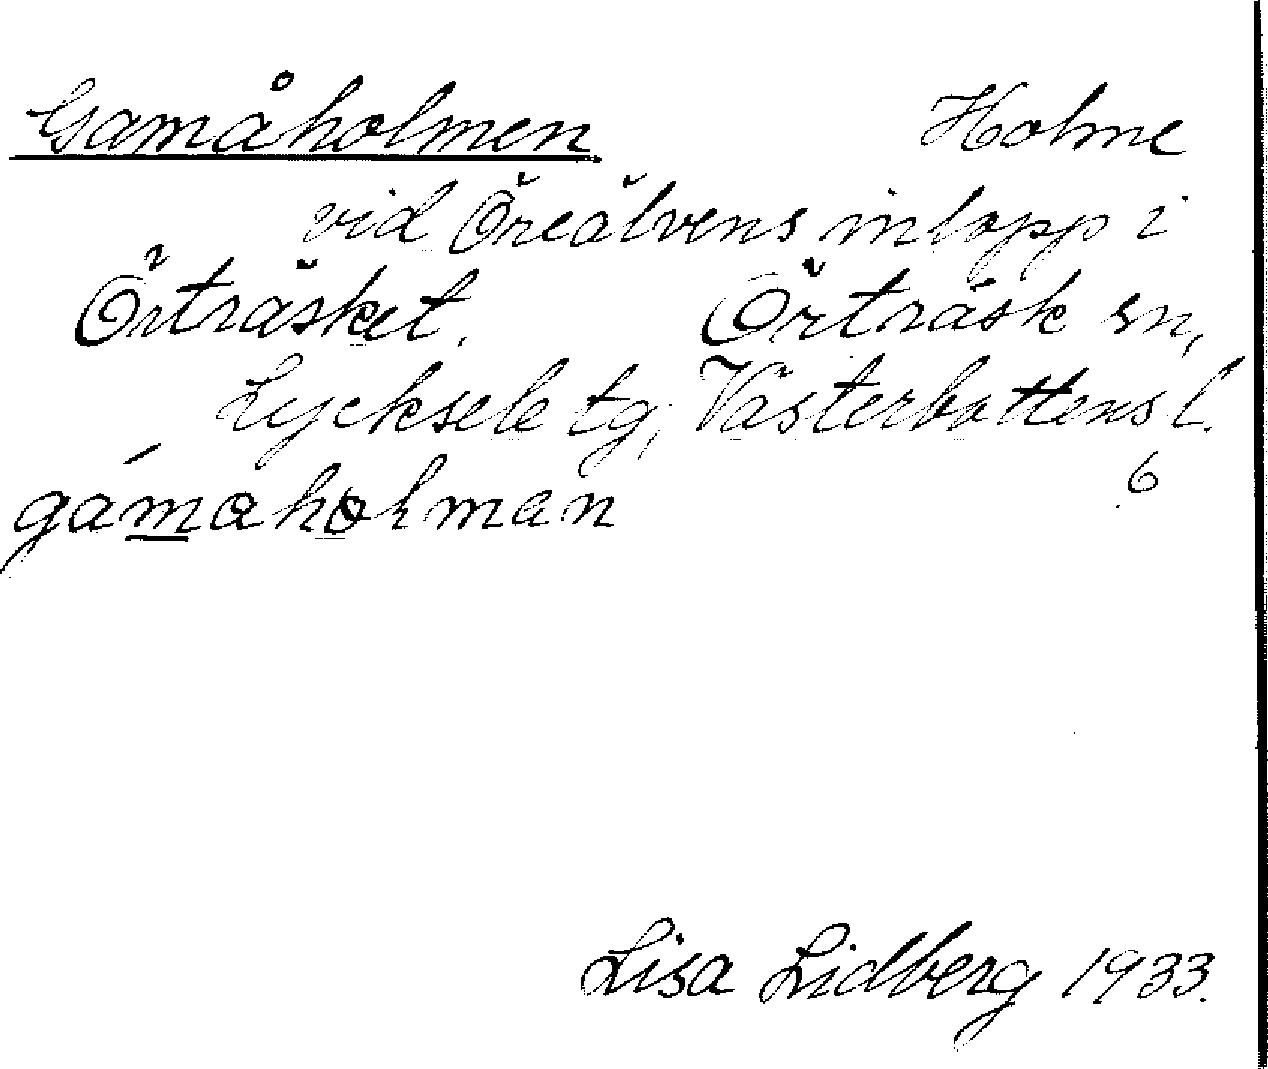 Gamåholmen Holme
vid Öreälvens inlopp i
Örträsket. Örträsk sn,
Lycksele tg, Västerbottens l.
6
gámaholman
Lisa Lidberg 1933.